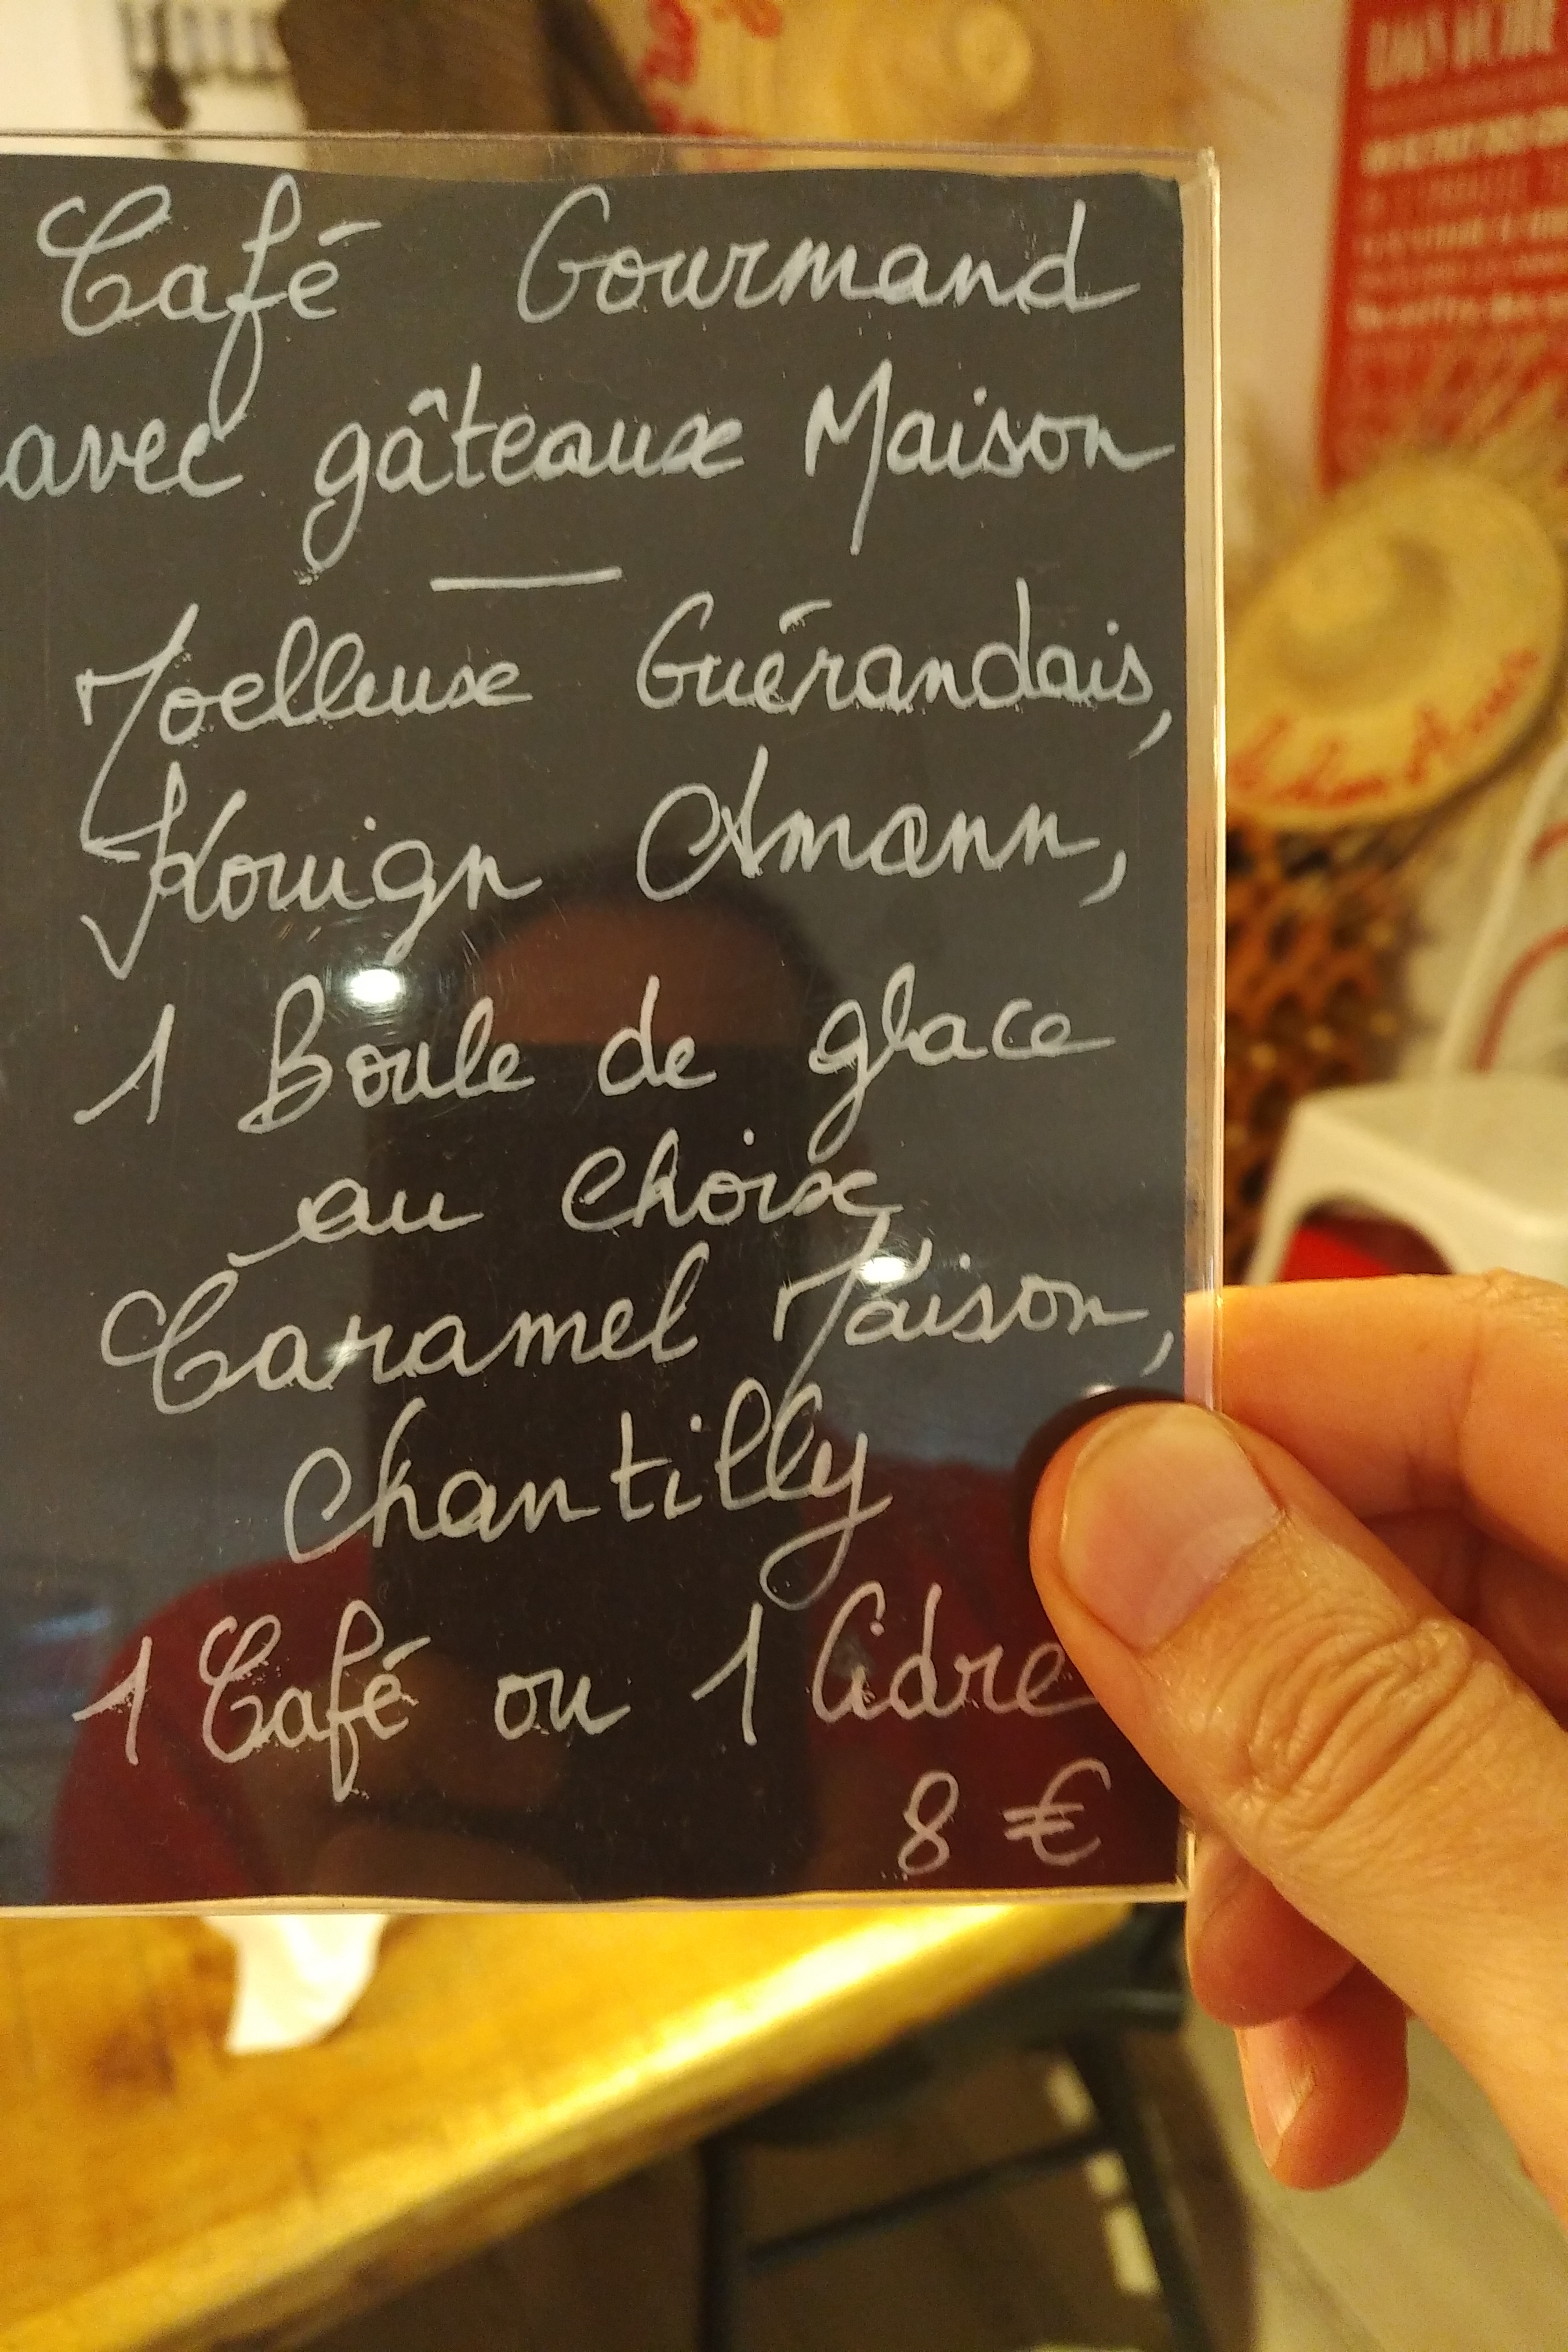 Café Gourmand
avec gâteaux Maison
Moelleuse Guérandais,
Kouign Amann,
1 Boule de glace
au choix,
Caramel Maison,
Chantilly
1 Café ou 1 Cidre
8 €